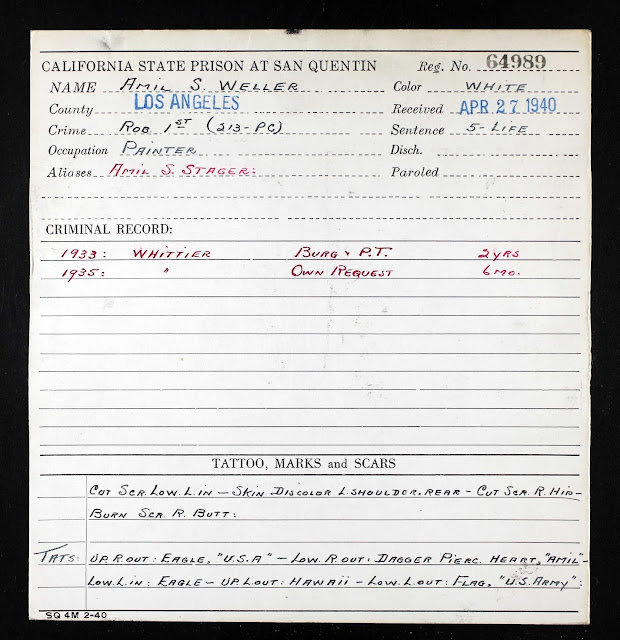 CALIFORNIA STATE PRISON AT SAN QUENTIN Reg. No. 64989
NAME AMIL S. WELLER Color WHITE
County LOS ANGELES Received APR 27 1940
Crime ROB 1ST (213-PC) Sentence 5-LIFE
Occupation PAINTER Disch.
Aliases AMIL S. STAGER: Paroled
CRIMINAL RECORD:
1933: WHITTIER BURG & P.T. 2 YRS
1935: " OWN REQUEST 6 MO.
TATTOO, MARKS and SCARS
CUT SCR. LOW. L. IN - SKIN DISCOLOR L. SHOULDER. REAR - CUT SCA. R. HIP-
BURN SCA. R. BUTT:
TATS: UP. R. OUT: EAGLE, "U.S.A" - LOW. R. OUT: DAGGER PIERC. HEART, "AMIL"-
LOW. L. IN: EAGLE - UP. L. OUT: HAWAII - LOW. L. OUT: FLAG, "U.S. ARMY":
SQ 4M 2-40